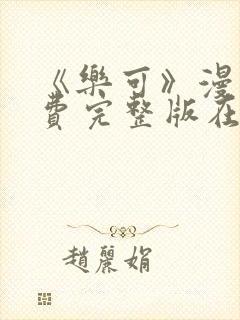 《樂可》漫
費完整版在
趙麗娟